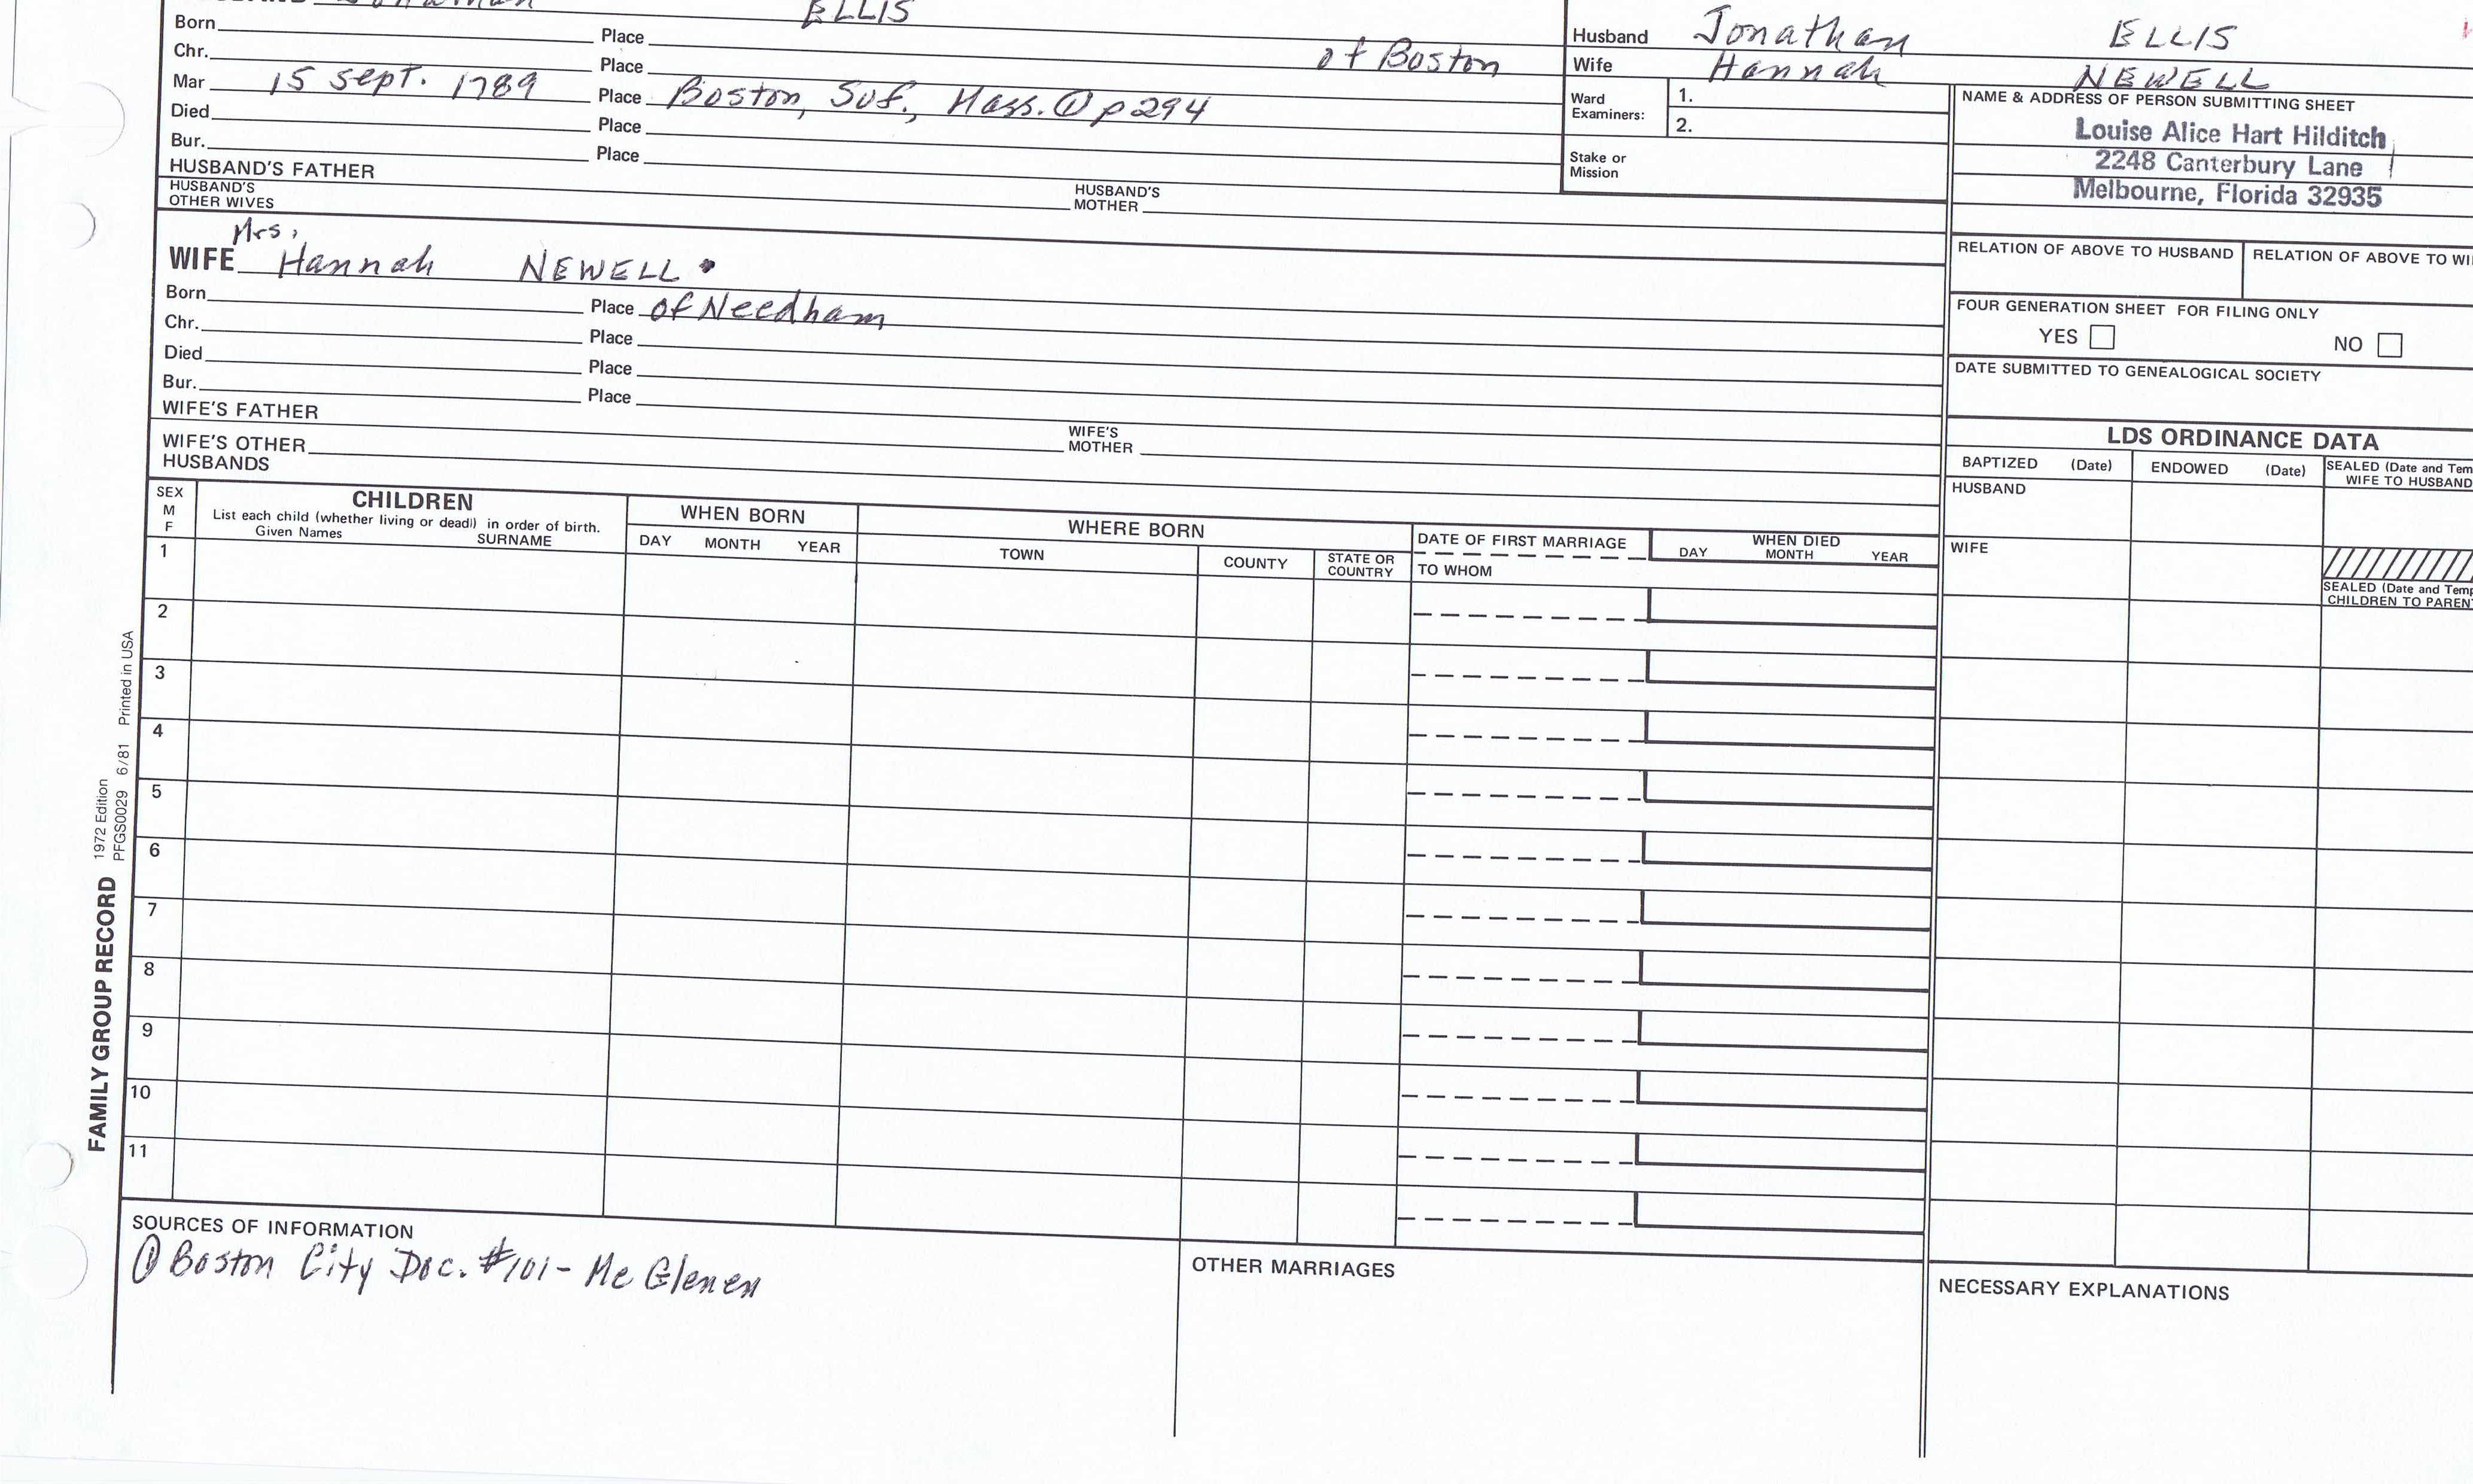 Jonathan ELLIS
Born Place of Boston
Chr. Place
Mar 15 sept. 1789 Place Boston, Suf., Mass. ① p294
Died Place
Bur. Place
HUSBAND'S FATHER
HUSBAND'S MOTHER
HUSBAND'S OTHER WIVES
Husband Jonathan ELLIS
Wife Hannah NEWELL
Ward Examiners:
1.
2.
Stake or Mission
NAME & ADDRESS OF PERSON SUBMITTING SHEET
Louise Alice Hart Hilditch
2248 Canterbury Lane
Melbourne, Florida 32935
RELATION OF ABOVE TO HUSBAND
RELATION OF ABOVE TO WI
FOUR GENERATION SHEET FOR FILING ONLY
YES NO
DATE SUBMITTED TO GENEALOGICAL SOCIETY
Mrs.
WIFE Hannah NEWELL
Born Place of Needham
Chr. Place
Died Place
Bur. Place
WIFE'S FATHER
WIFE'S MOTHER
WIFE'S OTHER HUSBANDS
LDS ORDINANCE DATA
BAPTIZED (Date) ENDOWED (Date) SEALED (Date and Tem
WIFE TO HUSBAND
HUSBAND
WIFE
SEALED (Date and Temp
CHILDREN TO PAREN
SEX
M
F
CHILDREN
List each child (whether living or dead) in order of birth.
Given Names SURNAME
WHEN BORN
DAY MONTH YEAR
WHERE BORN
TOWN COUNTY STATE OR COUNTRY
DATE OF FIRST MARRIAGE
TO WHOM
WHEN DIED
DAY MONTH YEAR
1
2
3
4
5
6
7
8
9
10
11
FAMILY GROUP RECORD
1972 Edition
PFGS0029 6/81 Printed in USA
SOURCES OF INFORMATION
① Boston City Doc. #101 - Mc Glenen
OTHER MARRIAGES
NECESSARY EXPLANATIONS